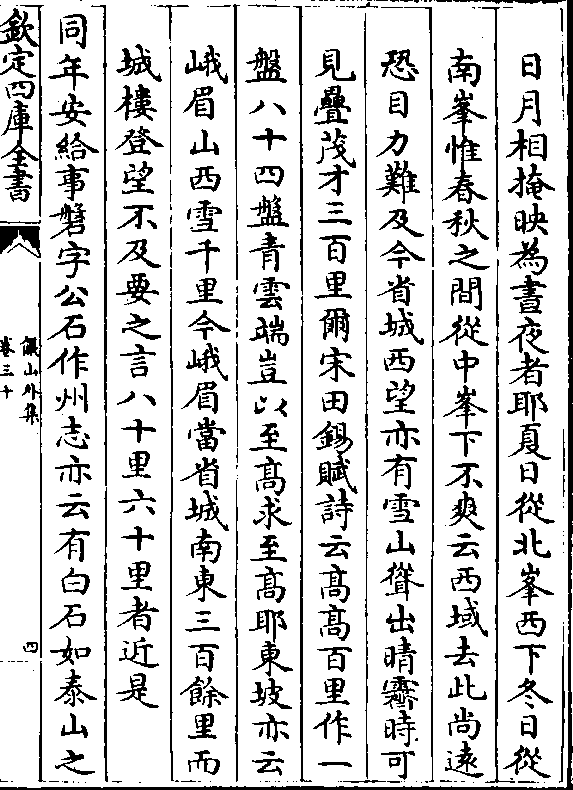 日月相掩映為晝夜者耶夏日從北峯西下冬日從
南峯惟春秋之間從中峯下不爽云西域去此尚遠
恐目力難及今省城西望亦有雪山聳出晴霽時可
見疊茂才三百里爾宋田錫賦詩云高高百里作一
盤八十四盤青雲端豈以至高求至高耶東坡亦云
峨眉山西雪千里今峨眉當省城南東三百餘里而
城樓登望不及要之言八十里六十里者近是
同年安給事磐字公石作州志亦云有白石如泰山之
欽定四庫全書
儼山外集
卷三十
四